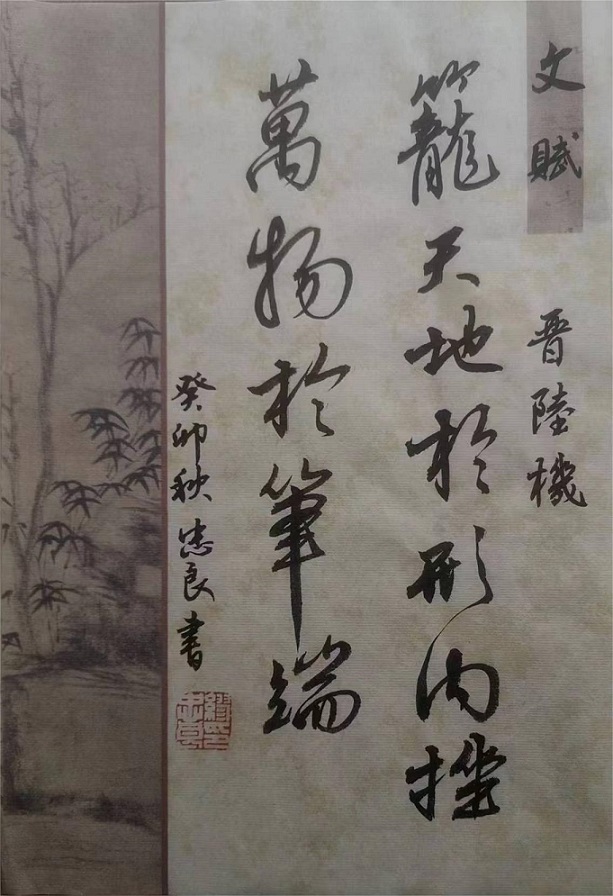 文賦
晋陸機
籠天地於形内挫
萬物於筆端
癸卯秋忠良書